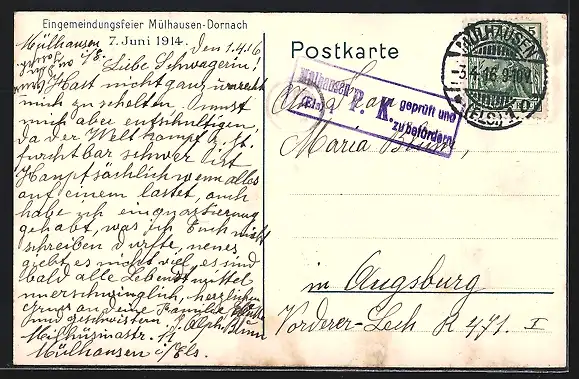 Eingemeindungsfeier Mülhausen-Dornach
7. Juni 1914.
Mülhausen i/E. den 1.4.16
Liebe Schwägerin!
Hast nicht ganz unrecht
mich zu schelten. Du must
mich aber entschuldigen,
da der Weltkampf z. Zt.
furchtbar schwer ist
Hauptsächlich wenn alles
auf einem lastet, auch
habe ich einquartierung
gehabt, was ich Euch nicht
schreiben durfte, neues
giebt es nicht viel, es sind
bald alle Lebensmittel
unerschwinglich, herzlichen
Gruss an deine Familie
und geschwistern.
Mülhausen i/Els.
Postkarte
MÜLHAUSEN
(ELS.) 1
Mülhausen
(Els)
P. K.
geprüft und
zu befördern
Frau
Maria Blum,
in Augsburg
Vorderer-Lech K 471. I